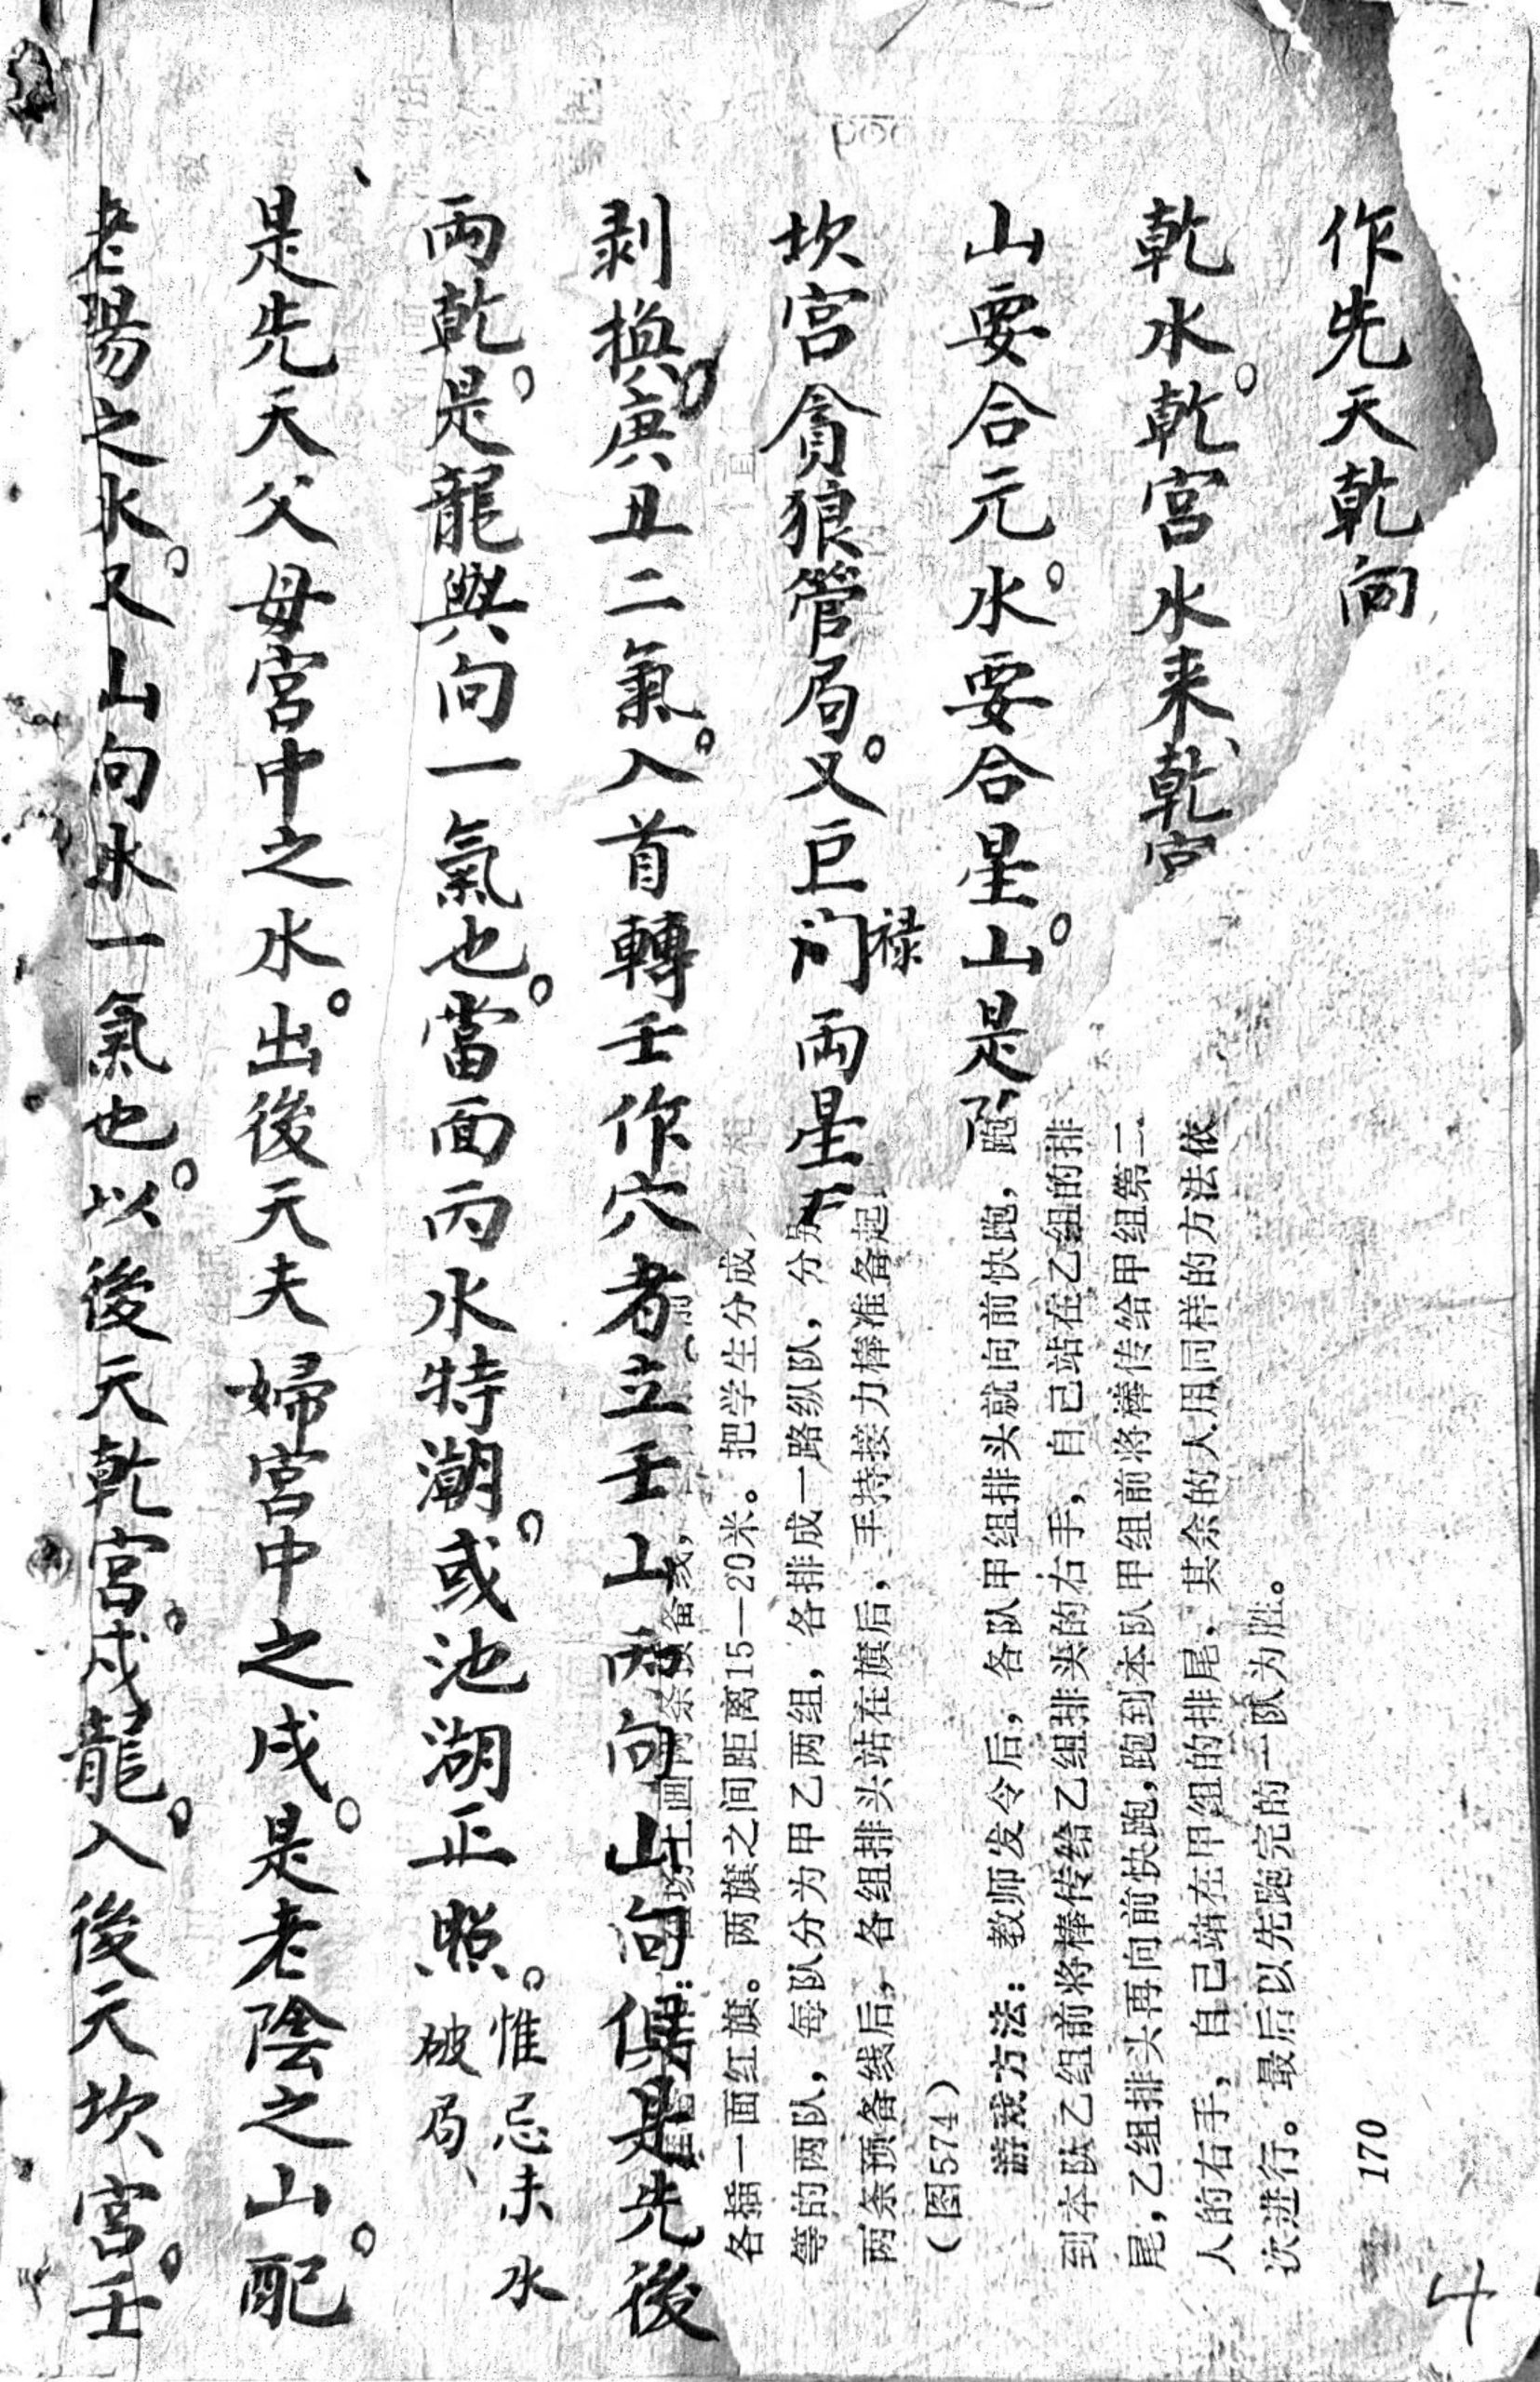 作先天乾向
乾水。乾宮水来、乾宮
山要合元。水要合星。山是
坎宮貪狼管局。又巨门禄両星
剥換。庚丑二氣。入首轉壬作穴者。立壬山丙向山向俱是先後
両乾。是龍與向一氣也。當面丙水特潮。或池湖正照。惟忌未水破局、
是先天父母宮中之水。出後天夫婦宮中之戌。是老陰之山。配
老陽之水。又山向水一氣也。以後天乾宮。戌龍。入後天坎宮。壬
各插一面红旗。两旗之间距离15—20米。把学生分成
等的两队，每队分为甲乙两组，各排成一路纵队，分别
两条预备线后，各组排头站在旗后，手持接力棒准备起
（图574）
游戏方法：教师发令后，各队甲组排头就向前快跑，跑
到本队乙组前将棒传给乙组排头的右手，自己站在乙组的排
尾，乙组排头再向前快跑，跑到本队甲组前将棒传给甲组第二
人的右手，自己站在甲组的排尾，其余的人用同样的方法依
次进行。最后以先跑完的一队为胜。
170